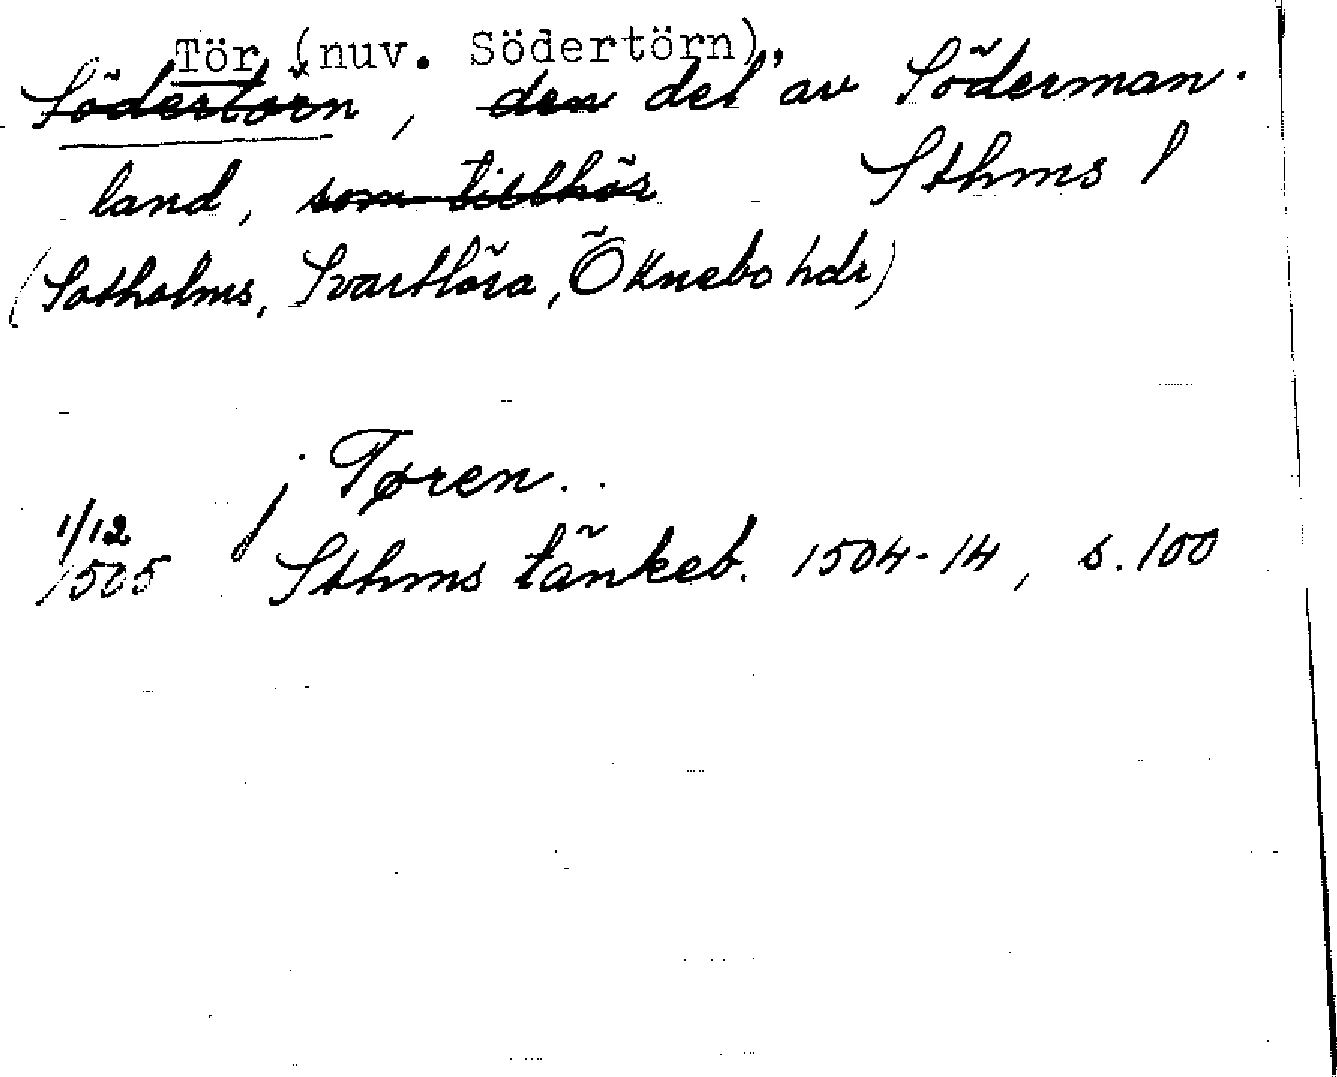 Tör (nuv. Södertörn),
Södertörn, den del av Söderman-
land, som tillhör Sthms l
(Sotholms, Svartlösa, Öknebo hdr)
j Tøren..
1/12
1505 Sthms tänkeb. 1504-14, s. 100